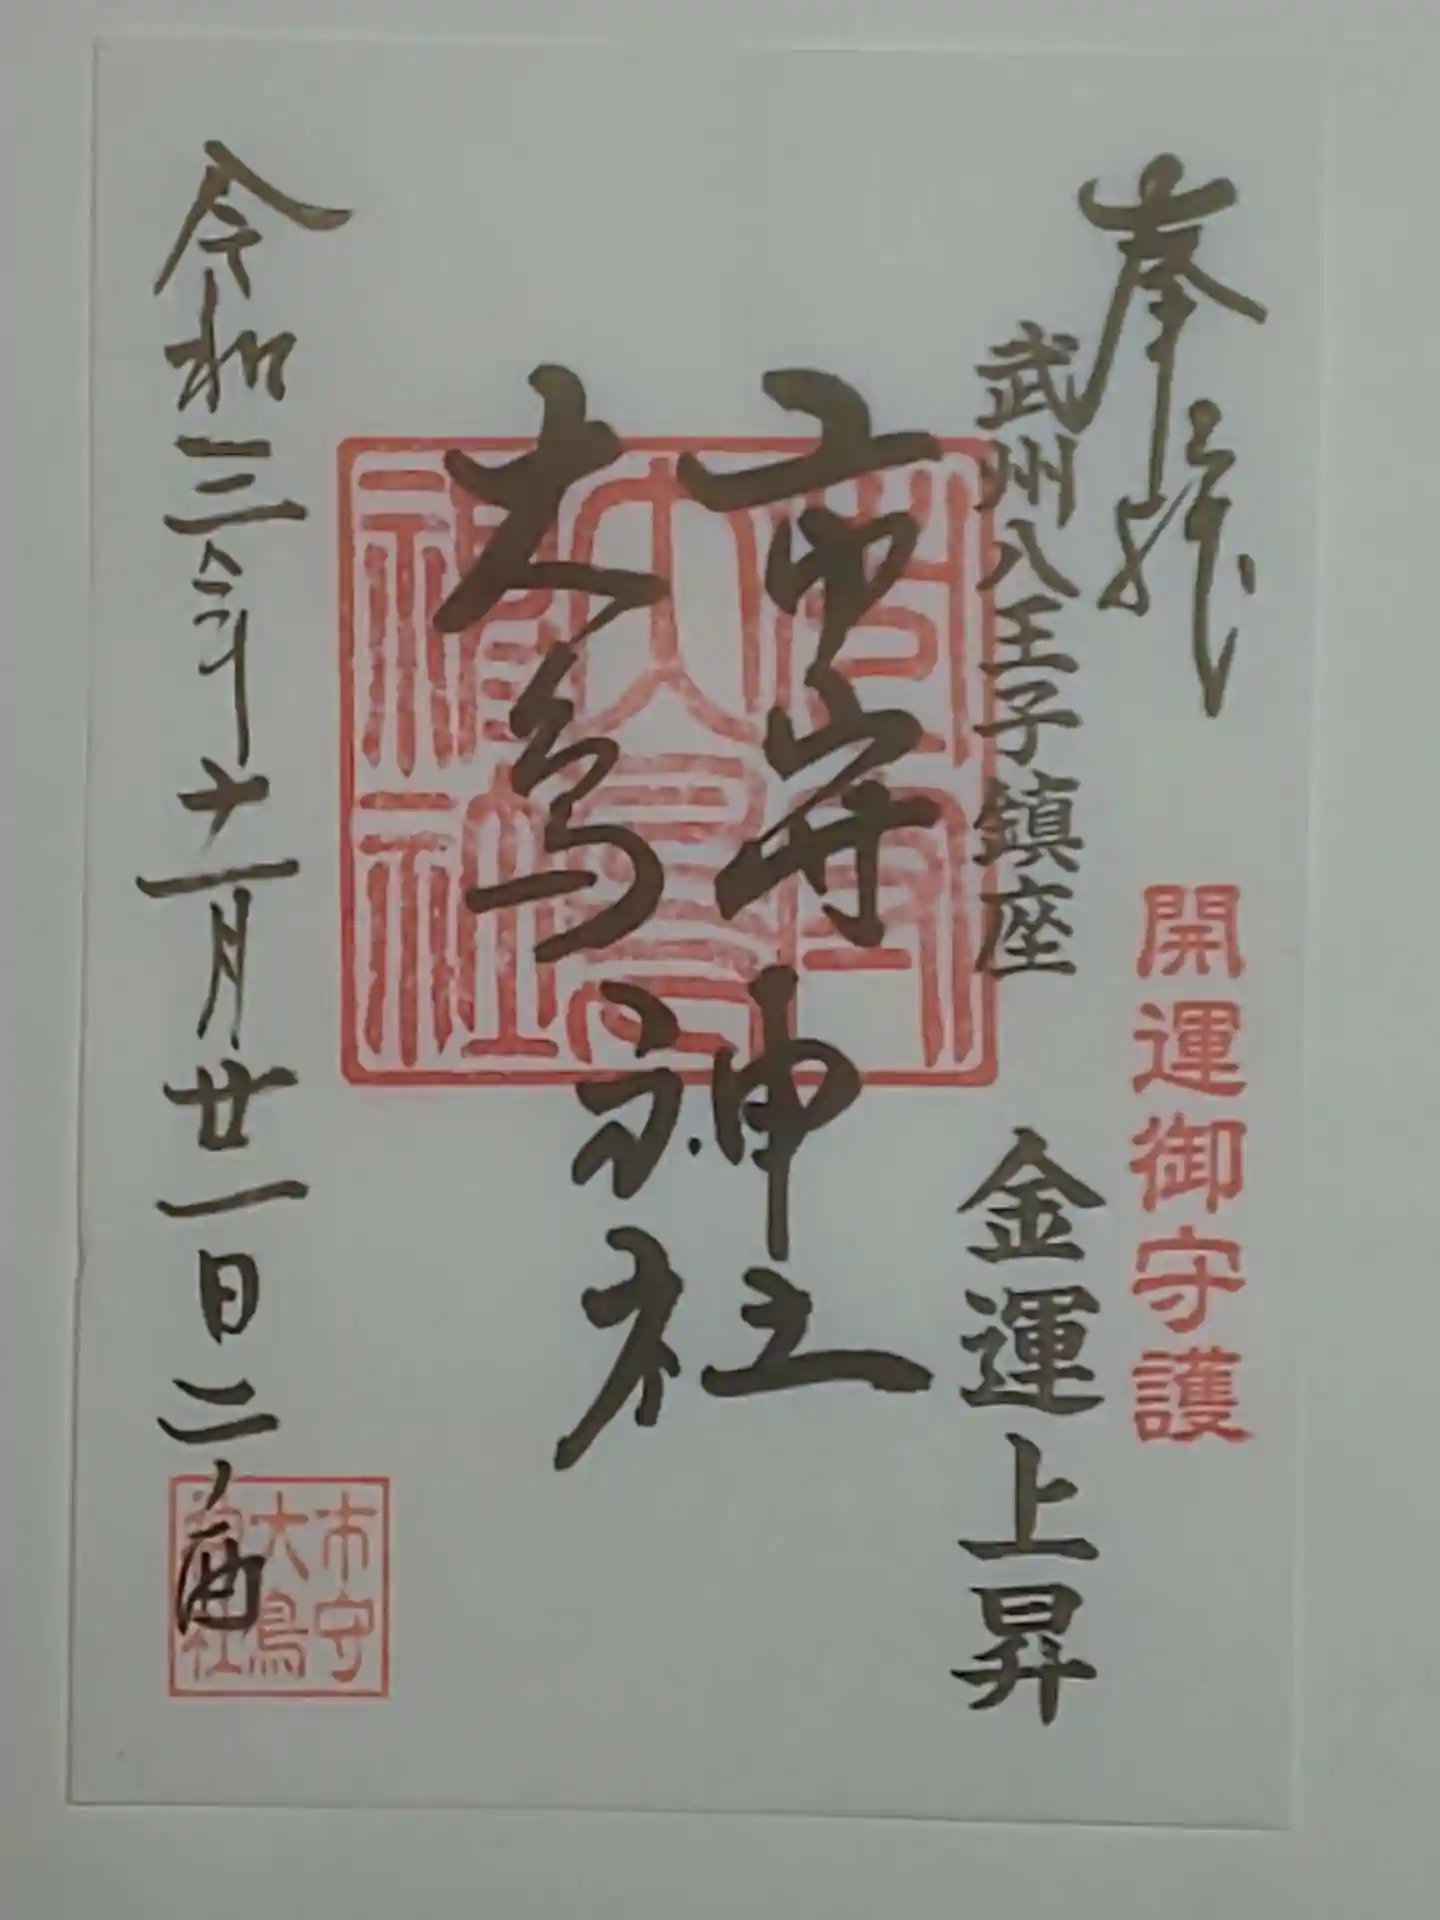 奉拝
開運御守護
武州八王子鎮座
金運上昇
市守
大鳥
神社
市守
大鳥
神社
令和三年十一月廿一日二ノ酉
市守
大鳥
神社